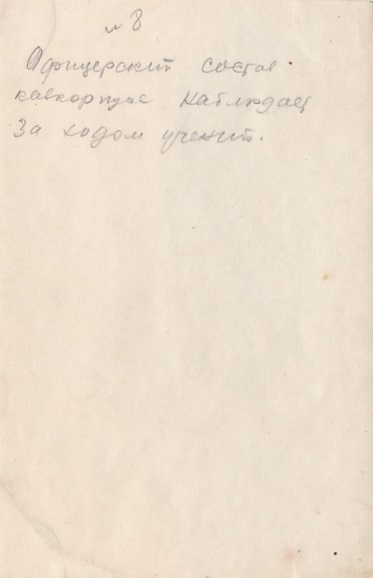 № 8
Офицерский состав
кавкорпуса наблюдает
за ходом учений.